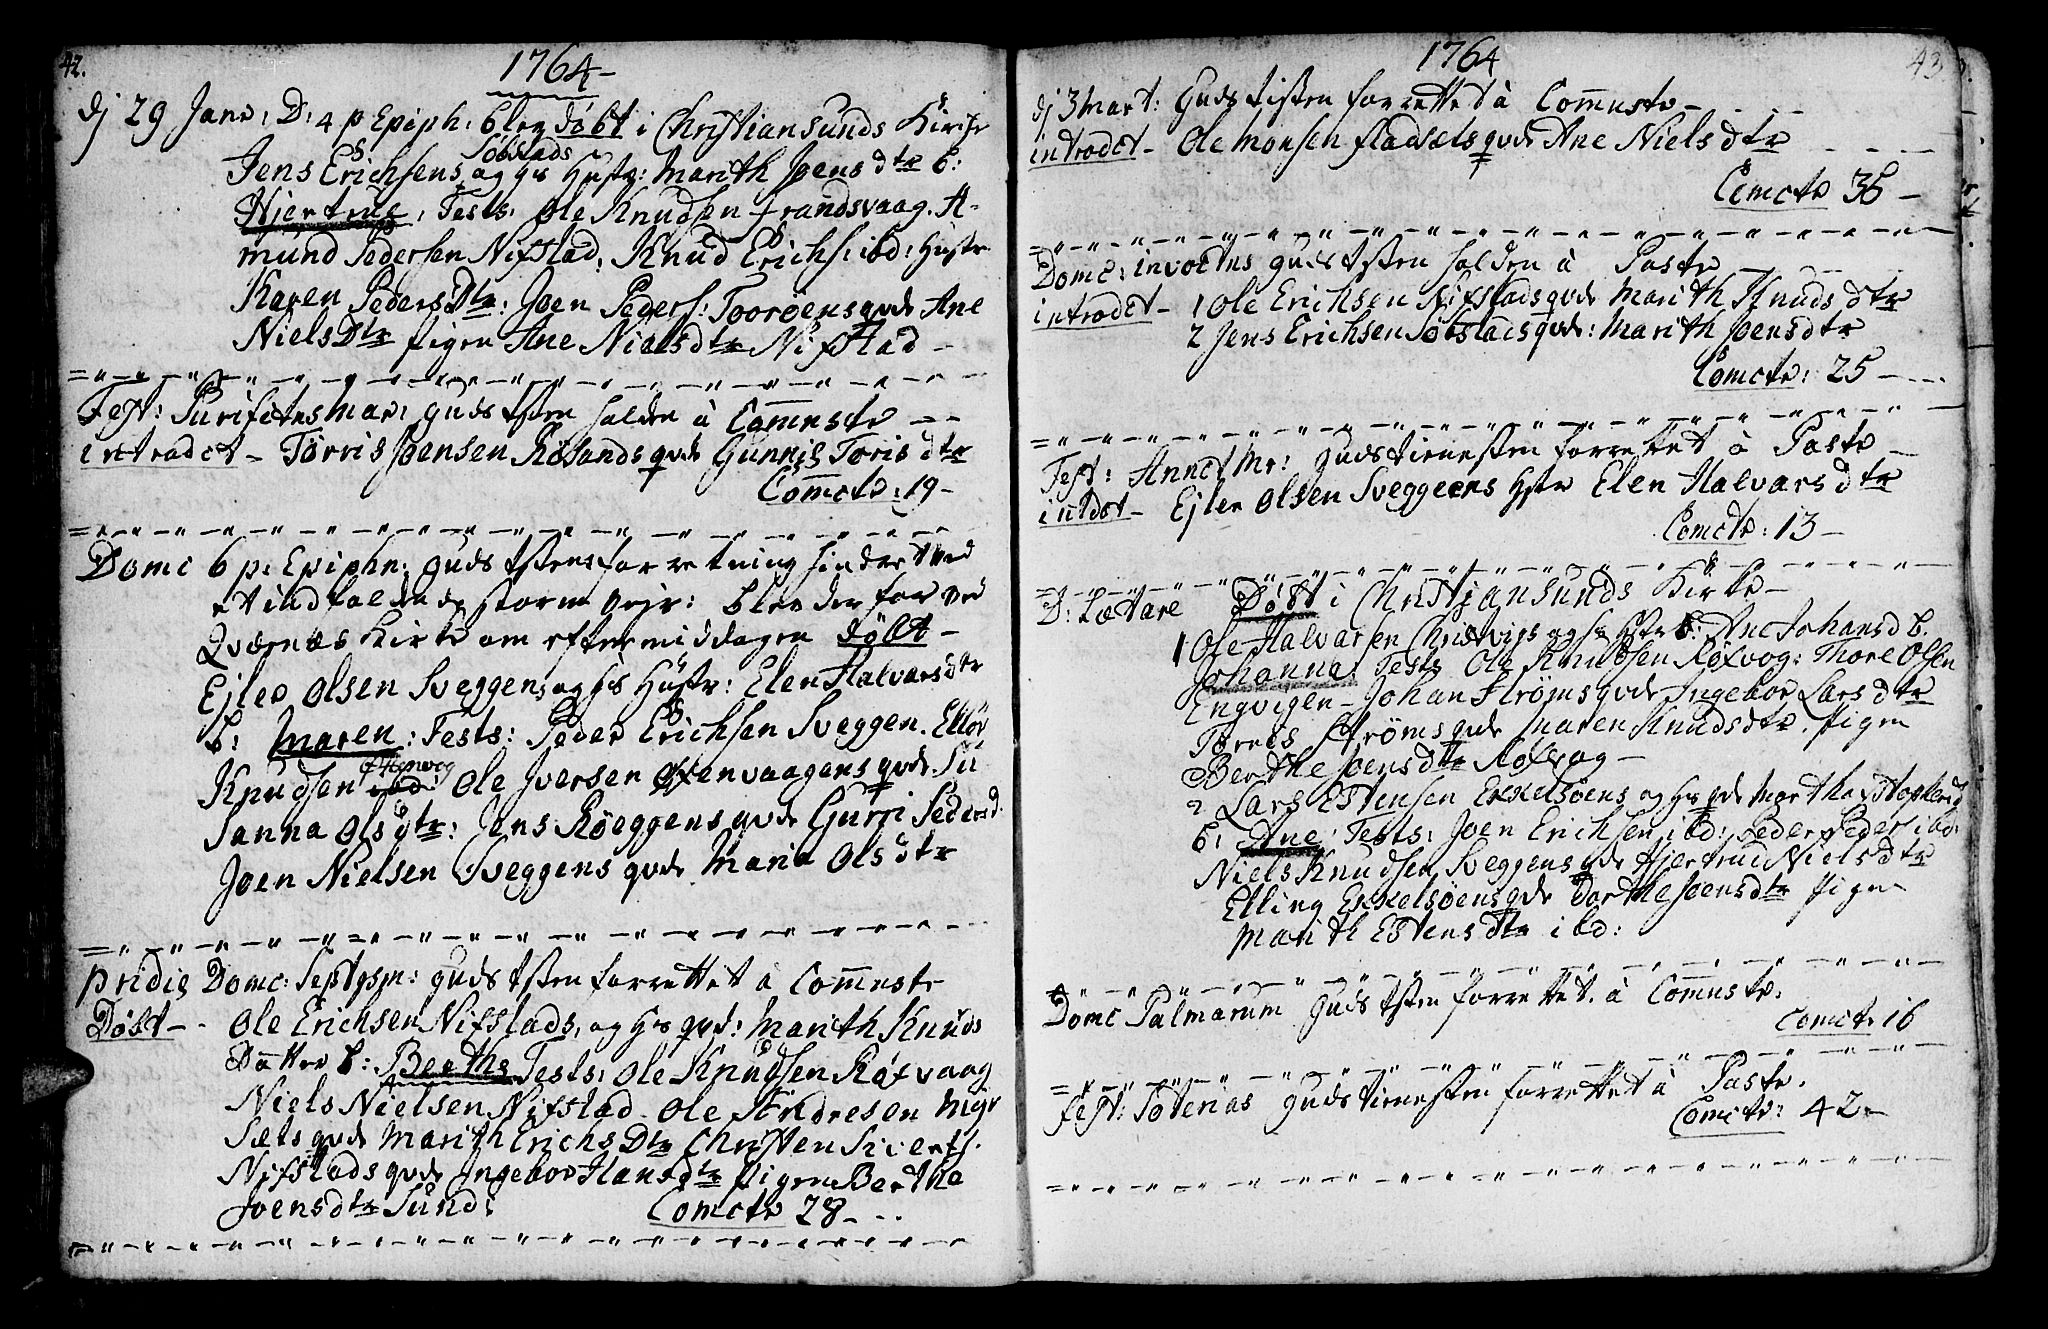 42.
1764
dj 29 Janr: D: 4 p Epiph: blev døbt i Christiansunds Kirke
Søbstads
Jens Erichsens og hs Hustr: Marith Joens dtr b:
Hjertrue, Tests: Ole Knudsen frandsvaag. A-
mund Pedersen Nifstad, Knud Erichs: ibd: Hustr
Karen Peders Dtr: Joen Peders: Toorøens qvde Ane
Niels Dtr Pigen Ane Niels dtr Nifstad
Fest: Purificatnis Mar: guds tsten holden à Comnste
introdct Tørris Joensen Røsands qvde Gunnil Toris dtr
Comcte: 19
Domc 6 p: Epiphn: guds tstens forretning hindret ved
et indfaldende storm veir: blev der for ved
Qvernæs Kirke om eftermiddagen døbt
Ejler Olsen Sveggen, og hs Hustr: Elen Halvars dtr
b: Maren: Tests: Peder Erichsen Sveggen. Ellør
Knudsen ibd: Ole Iversen Oxenvaagens qvde Su
sanna Ols dtr: Jens Røeggens qvde Gurri Pedersd.
Joen Nielsen Sveggens qvde Maria Ols dtr
pridie Domc: Septgsm: guds tsten forrettet à Comnste
Døbt Ole Erichsen Nifstads, og hs qvd: Marith Knuds
Datter b: Berthe Tests: Ole Knudsen Røxvaag
Niels Nielsen Nifstad. Ole Andresen Myr
sæts qvde Marith Erichs Dtr Christen Siverts.
Nifstads qvde Ingebor Hans dtr Pigen Berthe
Joens dtr Sund.
Comcte 28
1764
43
dj 3 Mart: Guds tisten forrettet à Comnste
introdct Ole Monsen fladsæts qvde Ane Niels dtr
Comcte 36
Domc: invocavis guds tsten holden à Paste
introdct 1 Ole Erichsen Nifstads qvde Marith Knuds dtr
2 Jens Erichsen Søbstads qvde: Marith Joens dtr
Comcte: 25
Fest: Annct Mr: guds tienesten forrettet à Paste
intdct Ejler Olsen Sveggens Hstr Elen Halvars dtr
Comcte: 13
D: Lætare Døbt i Christjansunds Kirke
1 Ole Halvarsen Christvigs og hs Hstr b: Ane Johansd b.
Johanna: Tests Ole Knudsen Røxvog: Thore Olsen
Engvigen Johan Strøms qvde Ingebor Lars dtr
Tørres Strøms qvde Maren Knuds dtr. Pigen
Berthe Joens dtr Røxvog
2 Lars Estensen Ekkelsøens og hs qvde Marthe
b: Ane: Tests: Joen Erichsen ibd: Peder Peders ibd:
Niels Knudsen Sveggens qvde Hjertrud Niels dtr
Elling Ekkelsøens qvde Dorthe Joens dtr Pigen
Marith Estens dtr ibd:
Domc Palmarum guds tsten forrettet à Comnste.
Comcte 16
Fest: Soterias guds tienesten forrettet à Paste.
Comcte: 42